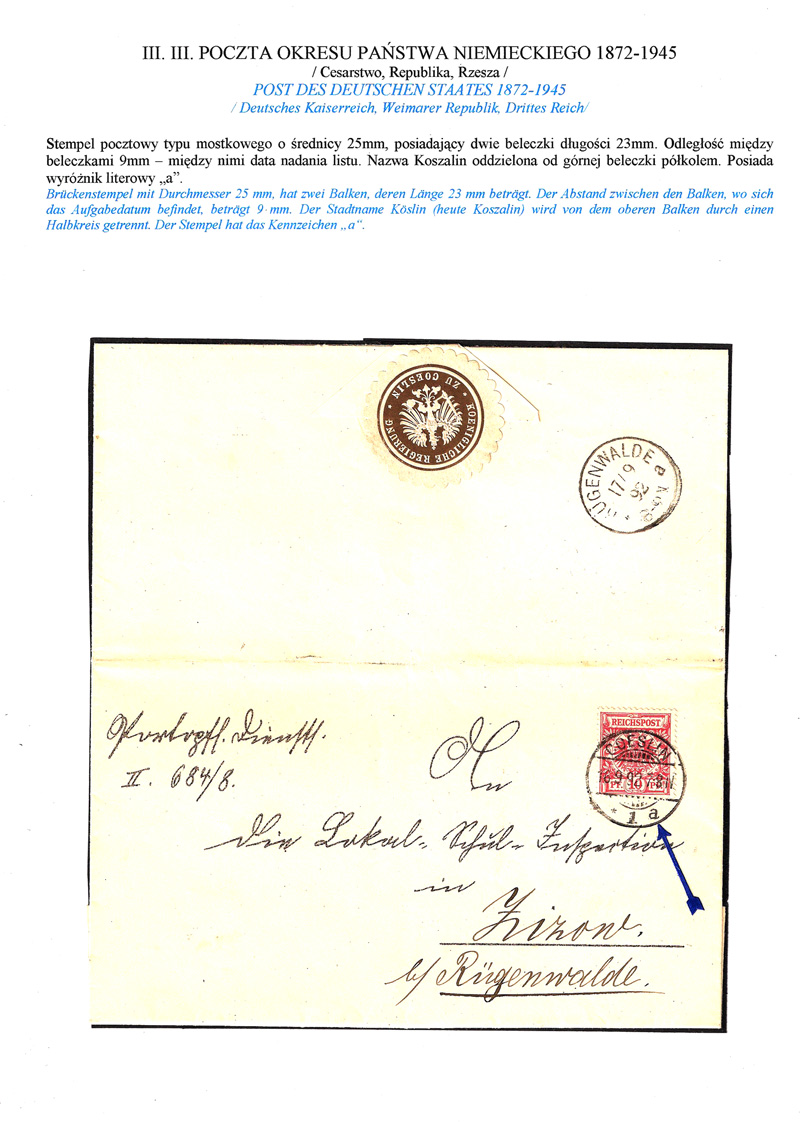 III. III. POCZTA OKRESU PAŃSTWA NIEMIECKIEGO 1872-1945
/ Cesarstwo, Republika, Rzesza /
POST DES DEUTSCHEN STAATES 1872-1945
/ Deutsches Kaiserreich, Weimarer Republik, Drittes Reich/
Stempel pocztowy typu mostkowego o średnicy 25mm, posiadający dwie beleczki długości 23mm. Odległość między
beleczkami 9mm – między nimi data nadania listu. Nazwa Koszalin oddzielona od górnej beleczki półkolem. Posiada
wyróżnik literowy „a”.
Brückenstempel mit Durchmesser 25 mm, hat zwei Balken, deren Länge 23 mm beträgt. Der Abstand zwischen den Balken, wo sich
das Aufgabedatum befindet, beträgt 9 mm. Der Stadtname Köslin (heute Koszalin) wird von dem oberen Balken durch einen
Halbkreis getrennt. Der Stempel hat das Kennzeichen „a“.
KOENIGLICHE REGIERUNG
ZU COESLIN
RÜGENWALDE a
17/9
92
Portopfl. Dienstf.
II. 684/8.
REICHSPOST
COESLIN
1 a
An
die Lokal-Schul-Inspektion
in
Zizow.
b/ Rügenwalde.